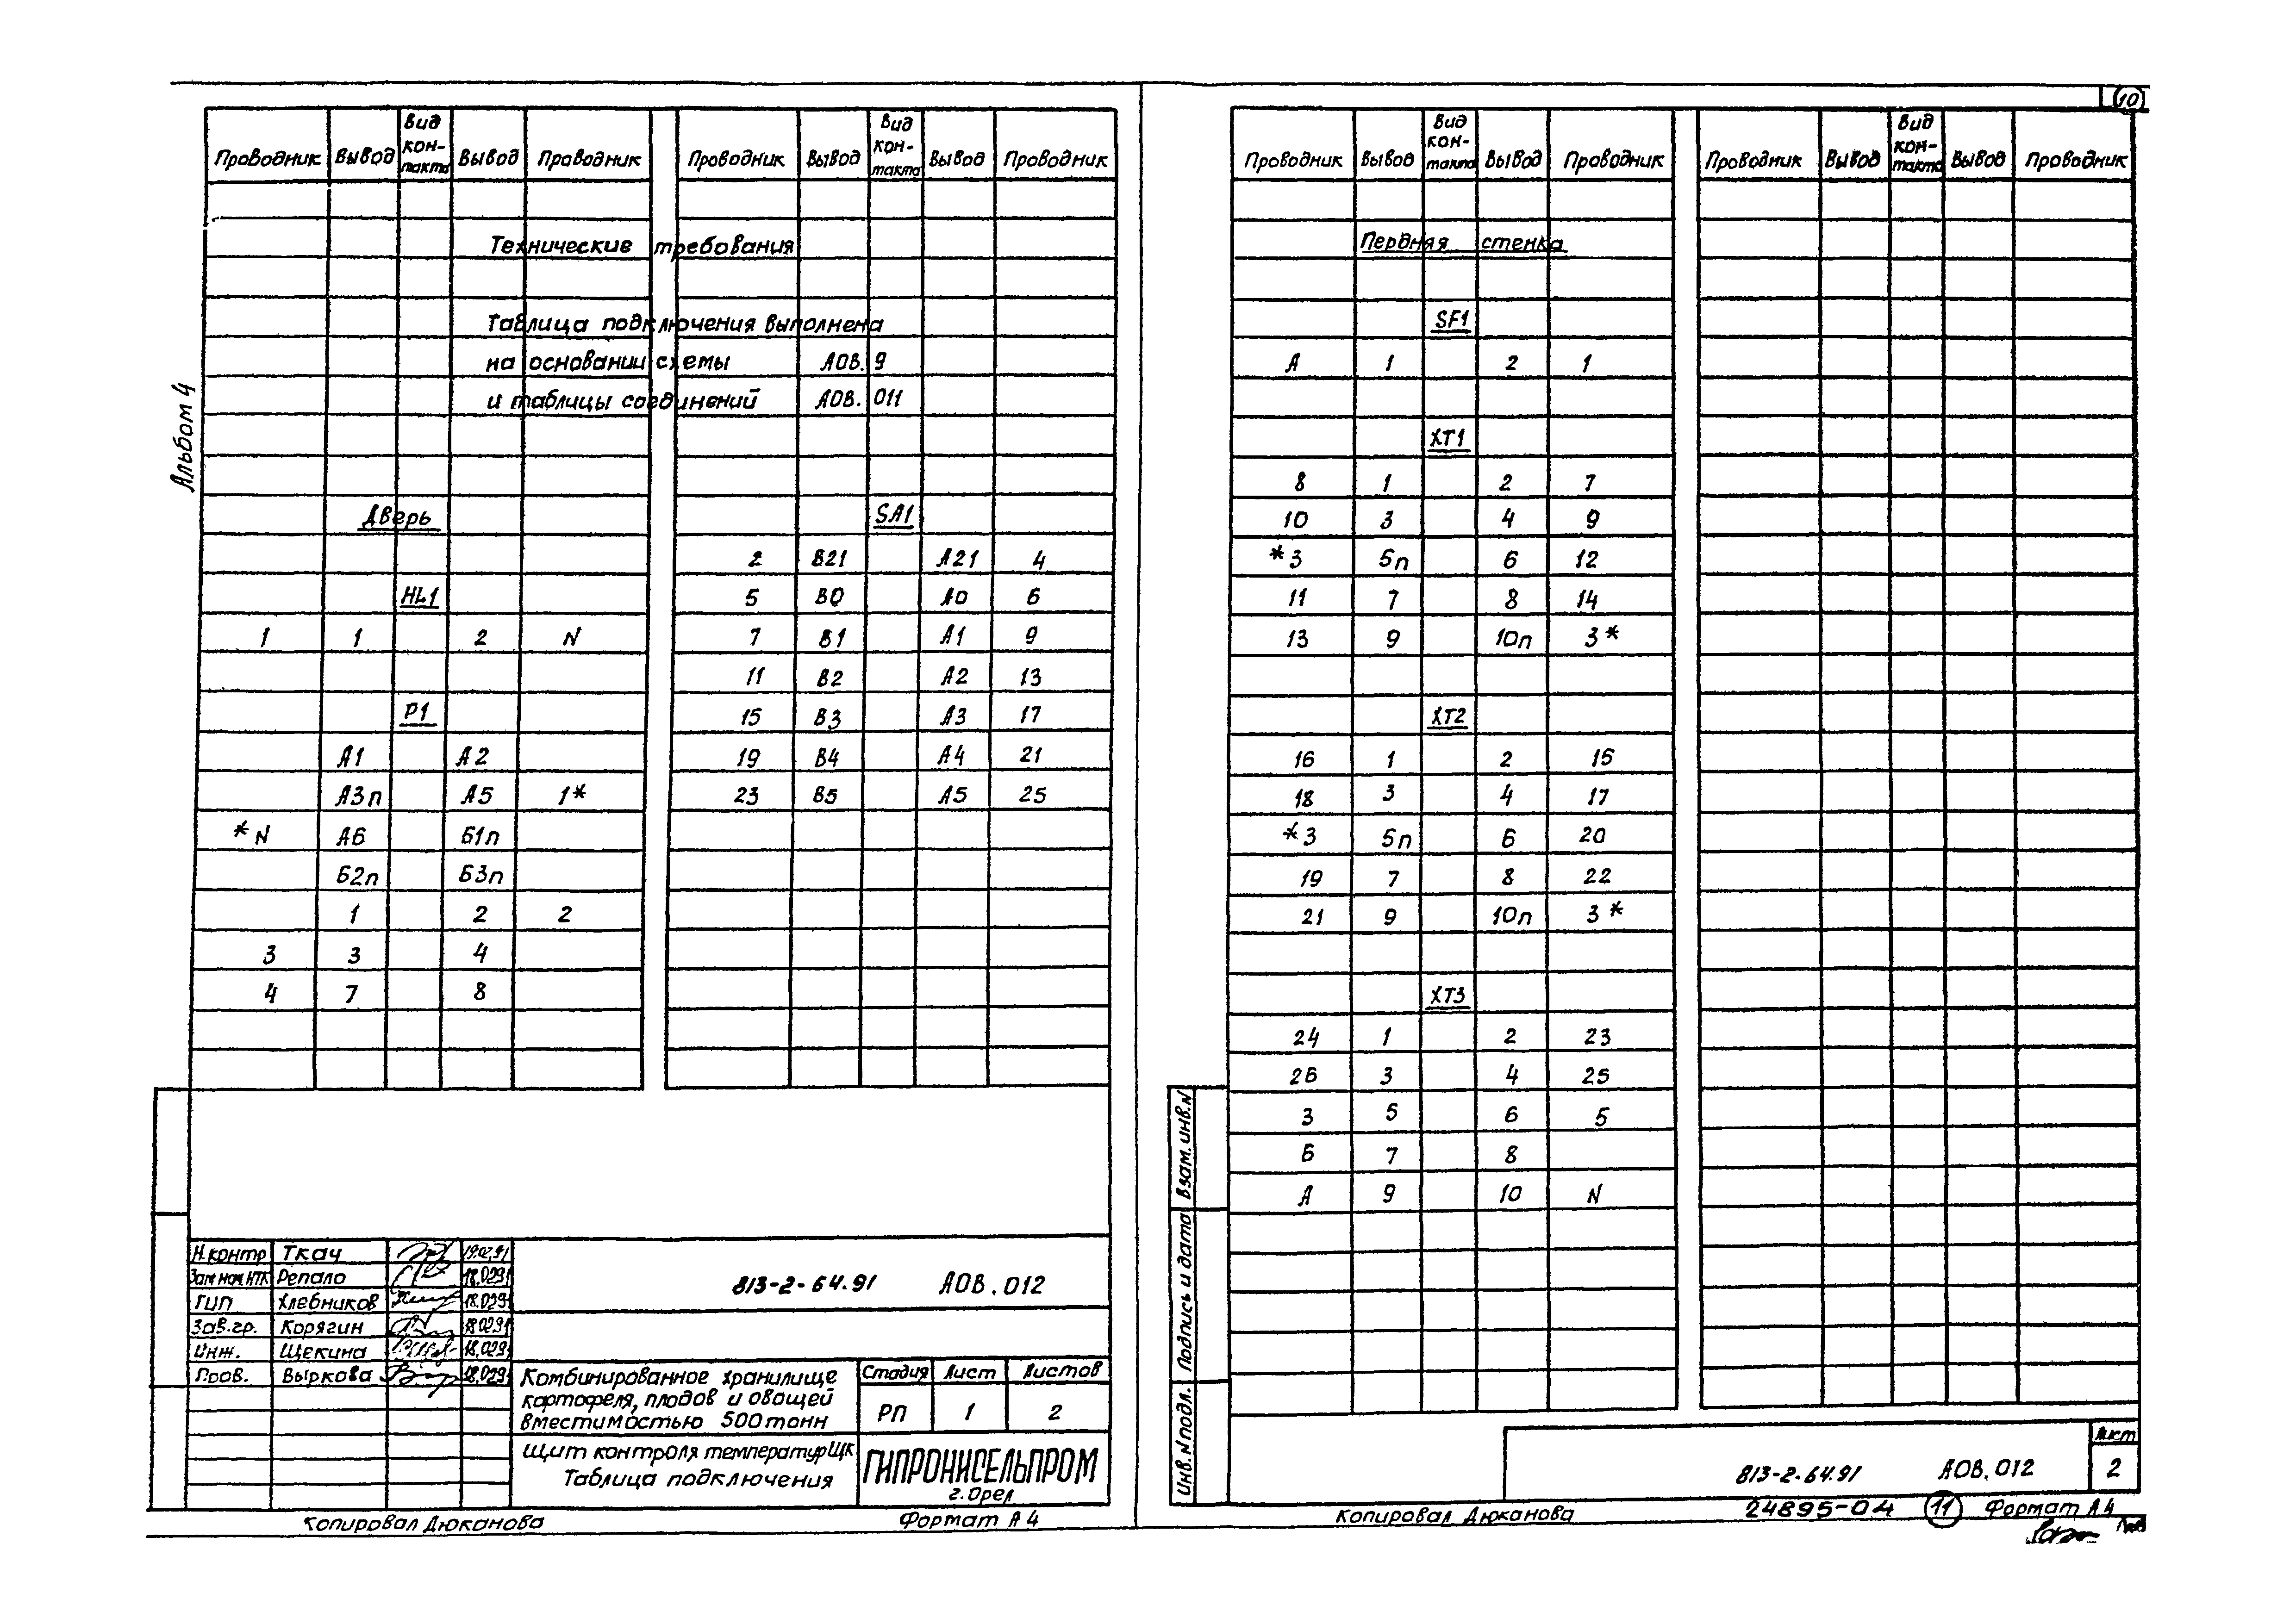 10
Альбом 4
Проводник Вывод Вид кон-такта Вывод Проводник Проводник Вывод Вид кон-такта Вывод Проводник
Технические требования
Таблица подключения выполнена
на основании схемы АОВ. 9
и таблицы соединений АОВ. 011
Дверь
HL1
1 1 2 N
P1
А1 А2
А3п А5 1*
*N А6 Б1п
Б2п Б3п
1 2 2
3 3 4
4 7 8
SA1
2 В21 А21 4
5 В0 А0 6
7 В1 А1 9
11 В2 А2 13
15 В3 А3 17
19 В4 А4 21
23 В5 А5 25
Н.контр Ткач 19.02.91
Зам нач. НТК Репало 18.0291
ГИП Хлебников 18.0291
Зав.гр. Корягин 18.0291
Инж. Щекина 18.0291
Пров. Выркова 18.0291
813-2-64.91 АОВ.012
Комбинированное хранилище
картофеля, плодов и овощей
вместимостью 500 тонн
Стадия Лист Листов
РП 1 2
Щит контроля температур ЩК
Таблица подключения
ГИПРОНИСЕЛЬПРОМ
г. Орел
Копировал Дюканова Формат А4
Проводник Вывод Вид кон-такта Вывод Проводник Проводник Вывод Вид кон-такта Вывод Проводник
Пердняя стенка
SF1
А 1 2 1
XT1
8 1 2 7
10 3 4 9
*3 5п 6 12
11 7 8 14
13 9 10п 3*
XT2
16 1 2 15
18 3 4 17
*3 5п 6 20
19 7 8 22
21 9 10п 3*
XT3
24 1 2 23
26 3 4 25
3 5 6 5
Б 7 8
А 9 10 N
Взам. инв. N
Подпись и дата
Инв. N подл.
813-2-64.91 АОВ.012
Лист
2
Копировал Дюканова 24895-04 11 Формат А4